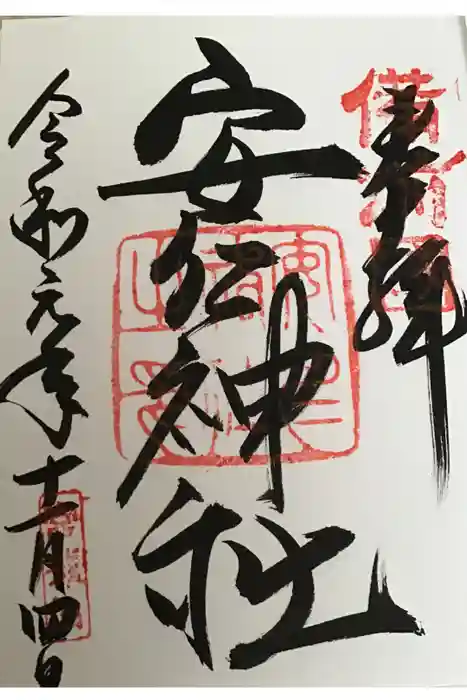 奉拝
備前國
安仁神社
令和元年十一月四日